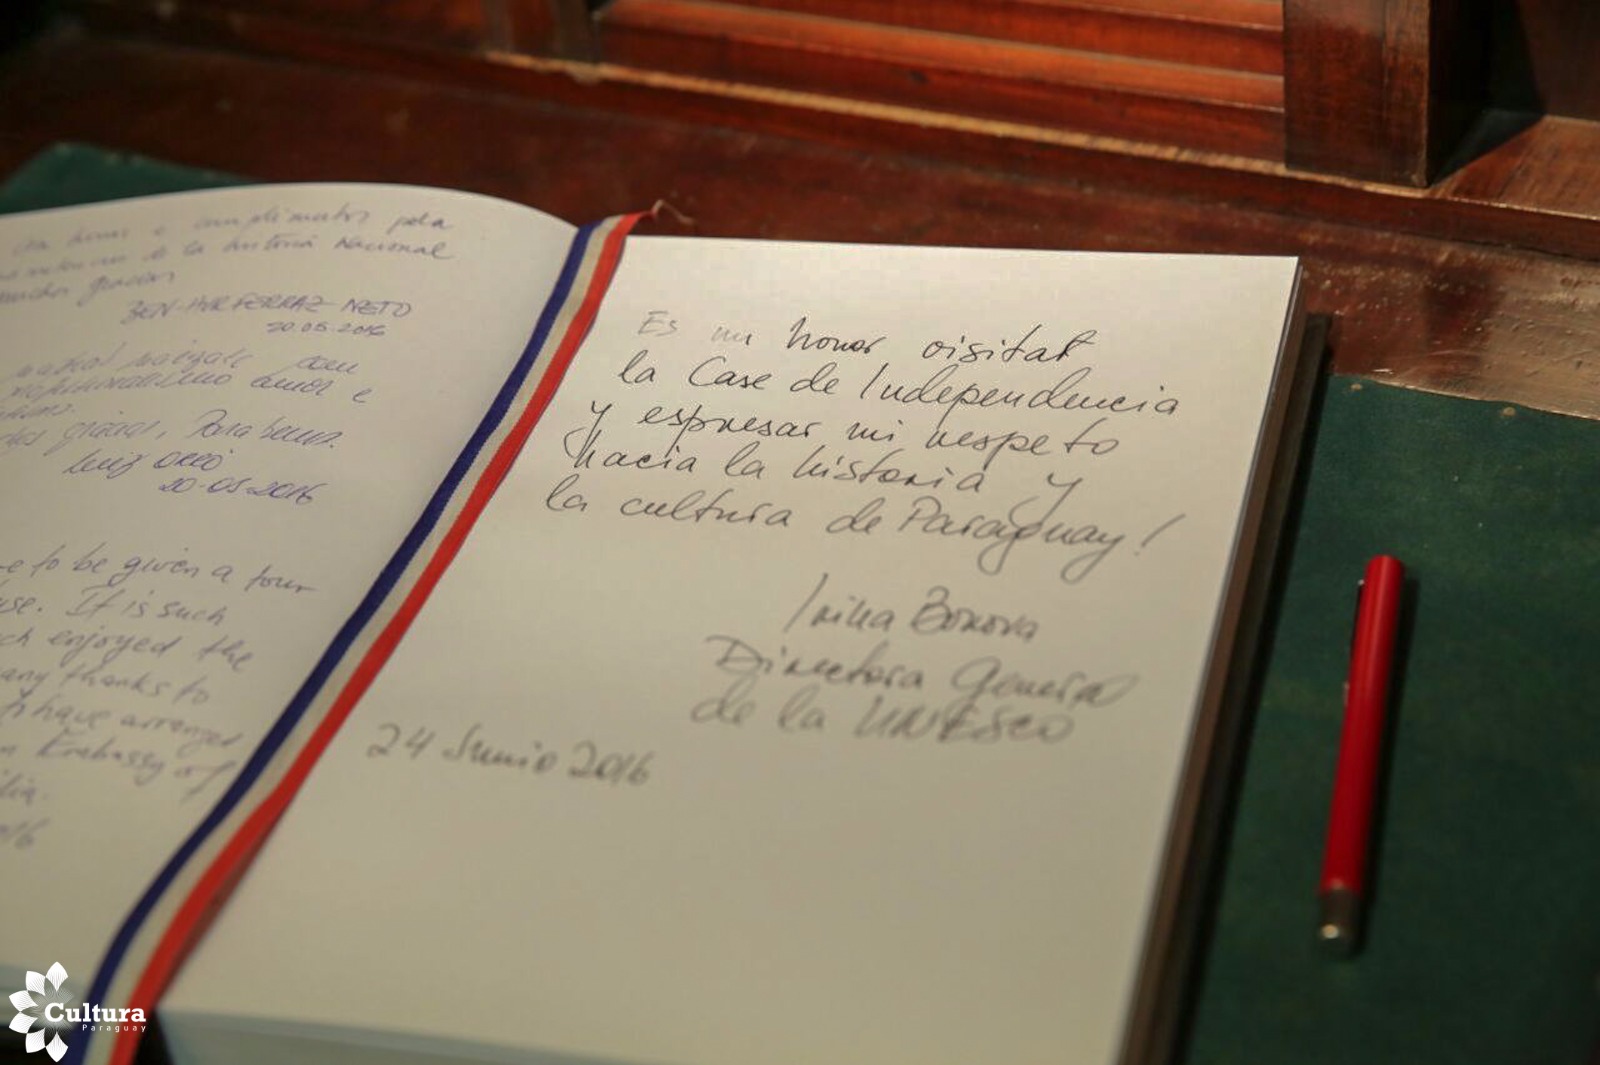 pela
de la historia Nacional
muchas gracias
BEN-HUR FERRAZ NETO
20.05.2016
com
amor e
gracias, Parabens.
Luiz
20-05-2016
to be given a tour
It is such
enjoyed the
many thanks to
have arranged
Embassy of
Es un honor visitat
la Case de Independencia
y espresar mi respeto
hacia la historia y
la cultura de Paraguay!
Irina Bokova
Directora General
de la UNESCO
24 Junio 2016
Cultura
Paraguay